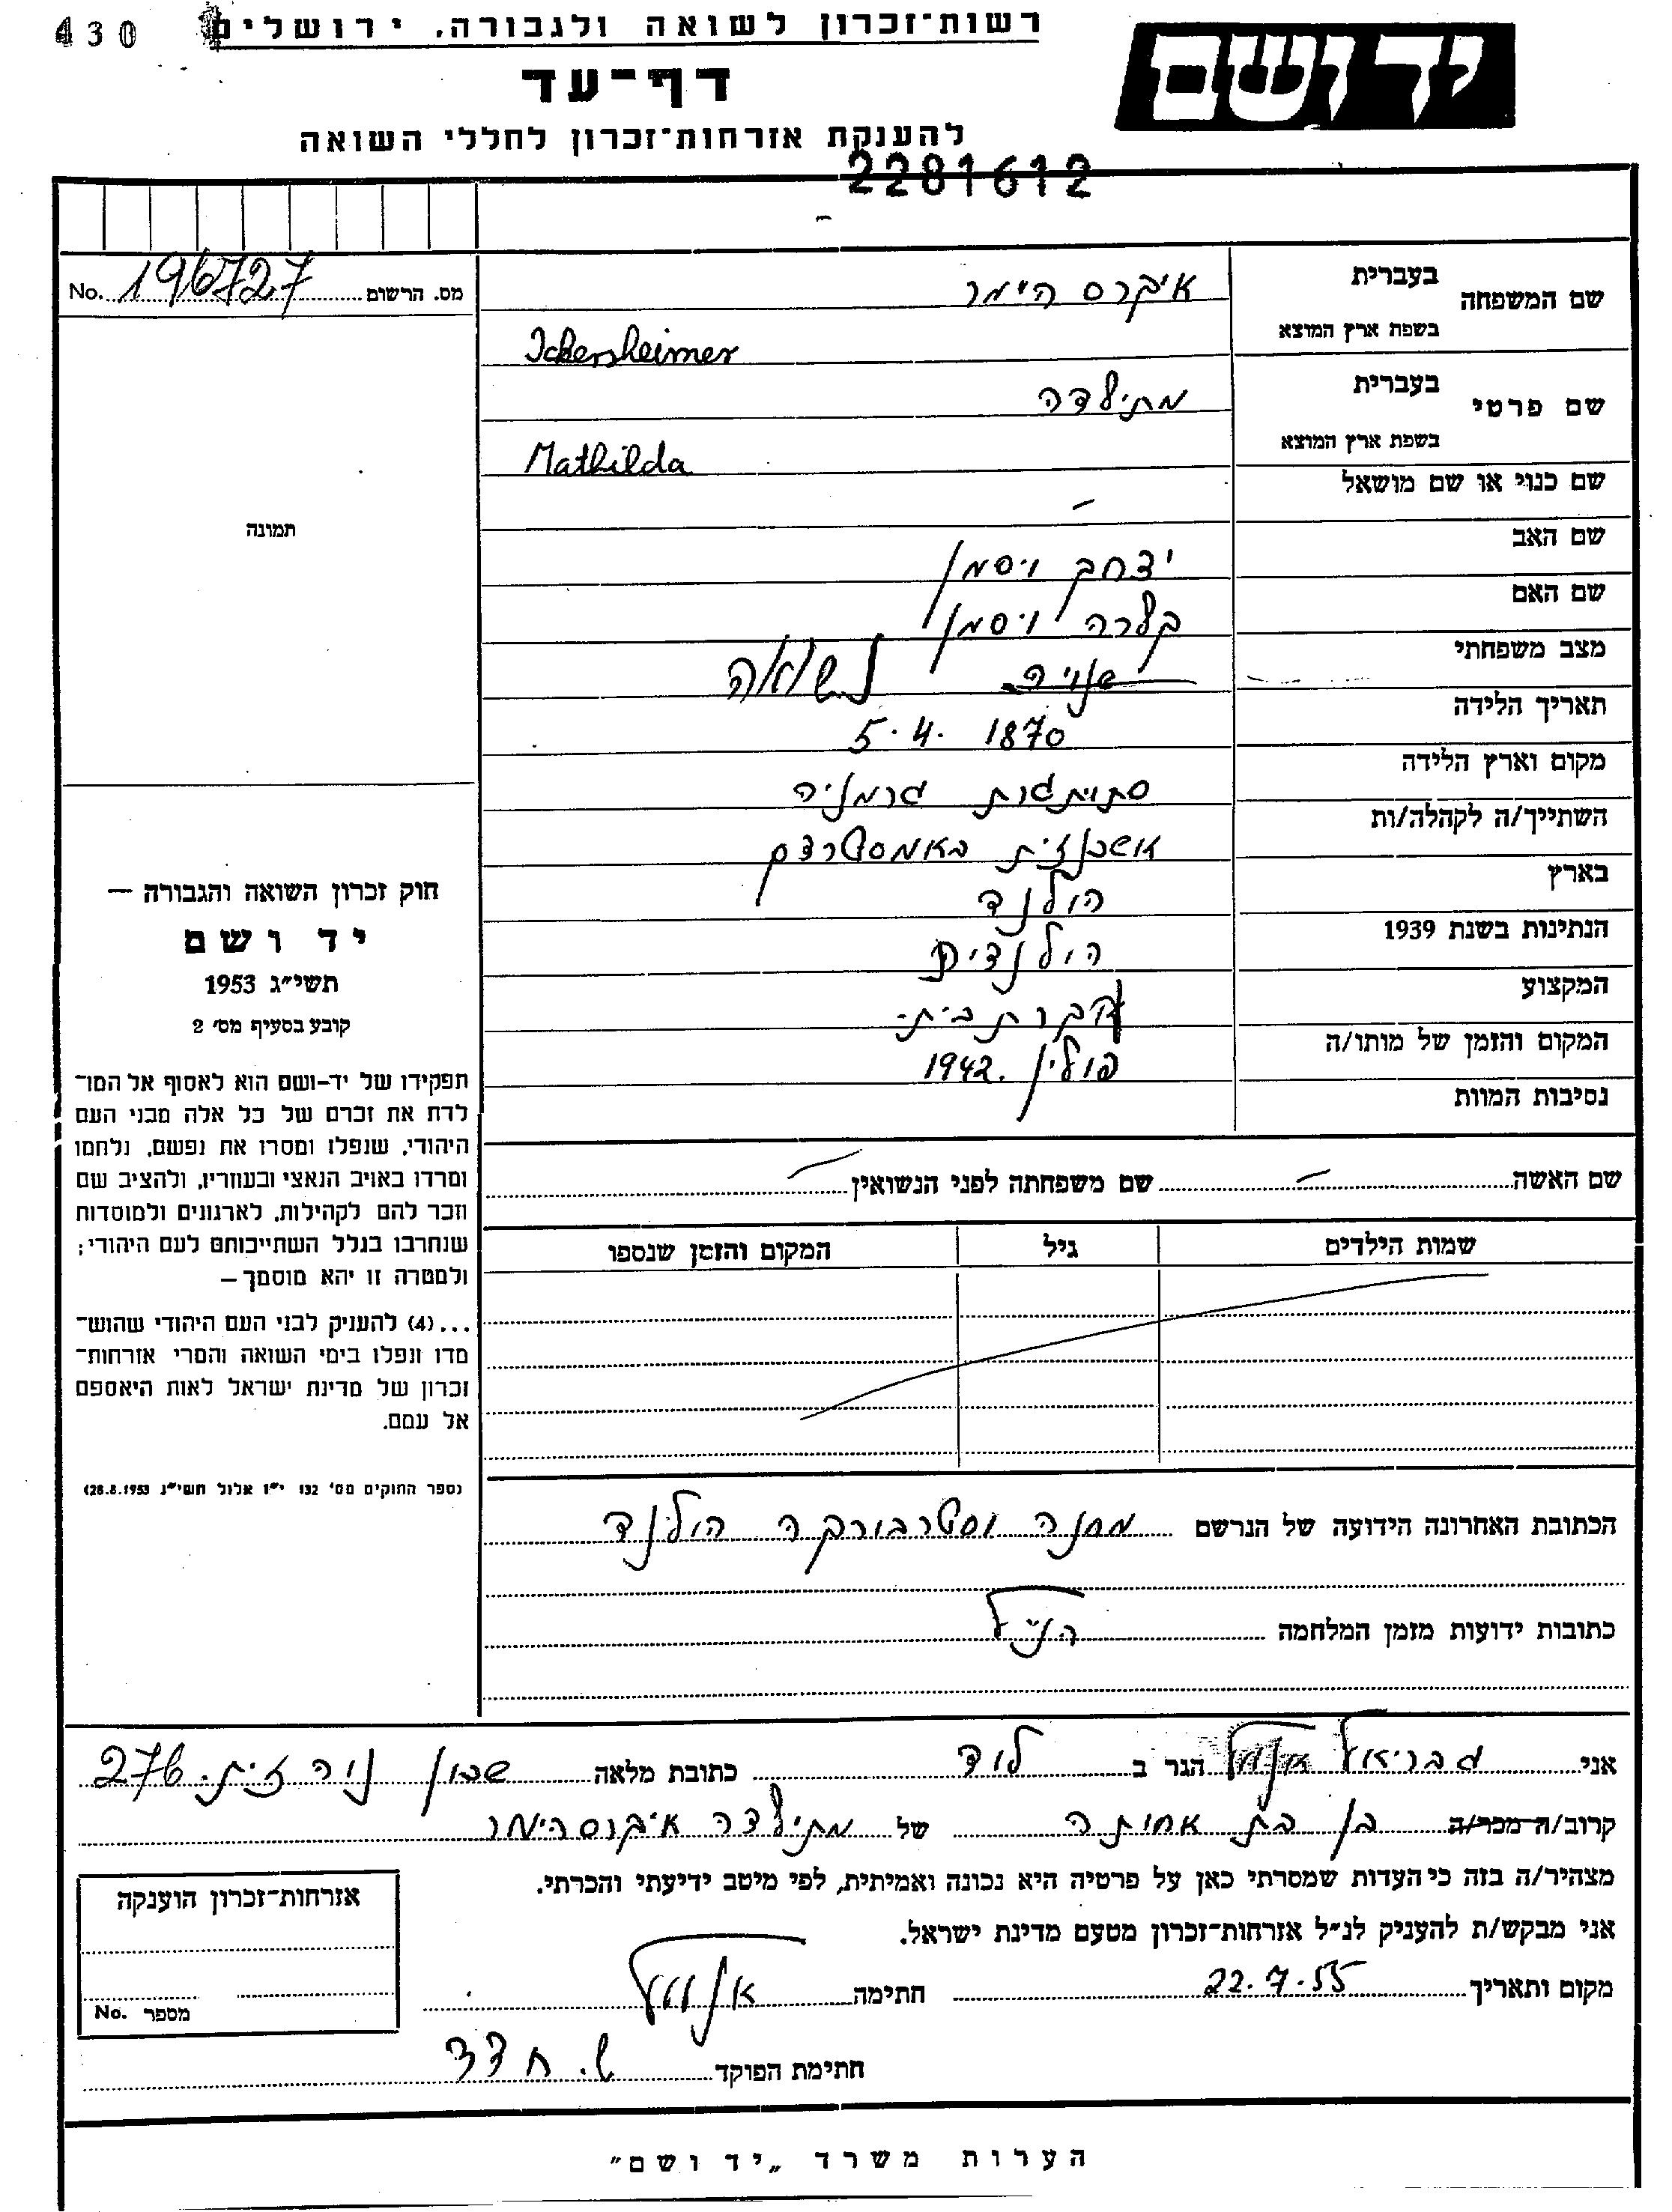 430
רשות־זכרון לשואה ולגבורה, ירושלים
יד ושם
דף־עד
להענקת אזרחות־זכרון לחללי השואה
2281612
מס. הרשום 196727 No.
תמונה
חוק זכרון השואה והגבורה —
יד ושם
תשי״ג 1953
קובע בסעיף מס׳ 2
תפקידו של יד-ושם הוא לאסוף אל המו־
לדת את זכרם של כל אלה מבני העם
היהודי, שנפלו ומסרו את נפשם, נלחמו
ומרדו באויב הנאצי ובעוזריו, ולהציב שם
וזכר להם לקהילות, לארגונים ולמוסדות
שנחרבו בגלל השתייכותם לעם היהודי;
ולמטרה זו יהא מוסמך—
...(4) להעניק לבני העם היהודי שהוש־
מדו ונפלו בימי השואה והמרי אזרחות־
זכרון של מדינת ישראל לאות היאספם
אל עמם.
(ספר החוקים מס׳ 132 י״ז אלול תשי״ג 28.8.1953)
שם המשפחה בעברית איקרס היימר
בשפת ארץ המוצא Ickersheimer
שם פרטי בעברית מתילדה
בשפת ארץ המוצא Mathilda
שם כנוי או שם מושאל –
שם האב יצחק ויסמן
שם האם קלרה ויסמן
מצב משפחתי נשואה
תאריך הלידה 5.4.1870
מקום וארץ הלידה גרמניה
השתייך/ה לקהלה/ות אשכנזית באמסטרדם
בארץ הולנד
הנתינות בשנת 1939 הולנדית
המקצוע עקרת בית
המקום והזמן של מותו/ה פולין 1942.
נסיבות המוות
שם האשה – שם משפחתה לפני הנשואין –
שמות הילדים גיל המקום והזמן שנספו
הכתובת האחרונה הידועה של הנרשם מחנה וסטרבורק הולנד
כתובות ידועות מזמן המלחמה הנ״ל
אני גבריאל הגר ב לוד כתובת מלאה שכון ניר זית 276
קרוב/ה מכר/ה בן בת אחותה של מתילדה איקרסהימר
מצהיר/ה בזה כי העדות שמסרתי כאן על פרטיה היא נכונה ואמיתית, לפי מיטב ידיעתי והכרתי.
אני מבקש/ת להעניק לנ״ל אזרחות־זכרון מטעם מדינת ישראל.
מקום ותאריך 22.7.55 חתימה
חתימת הפוקד ש. חדד
אזרחות־זכרון הוענקה
מספר No.
הערות משרד „יד ושם״